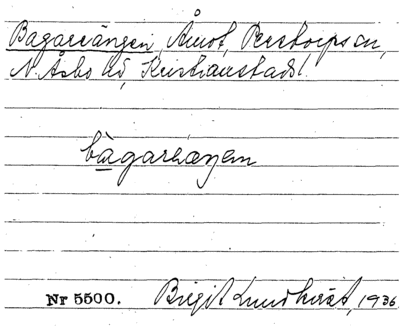 Bagareängen, Åmot, Perstorps sn,
N. Åsbo hd, Kristianstads l.
bagaræŋen
Nr 5500. Birgit Lundkvist, 1936